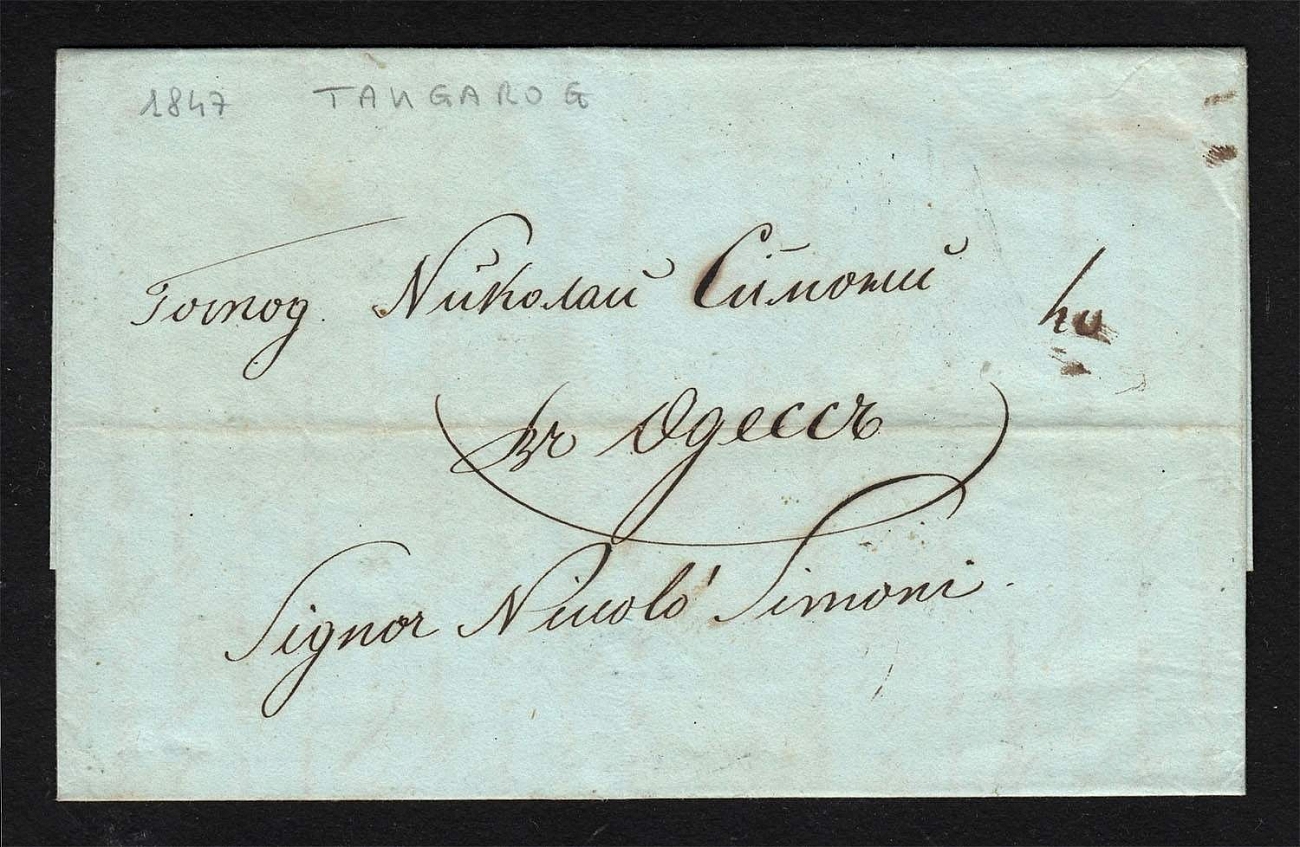 1847 TANGAROG
Господ. Николай Симони
въ Одессъ
Signor Niccoló Simoni